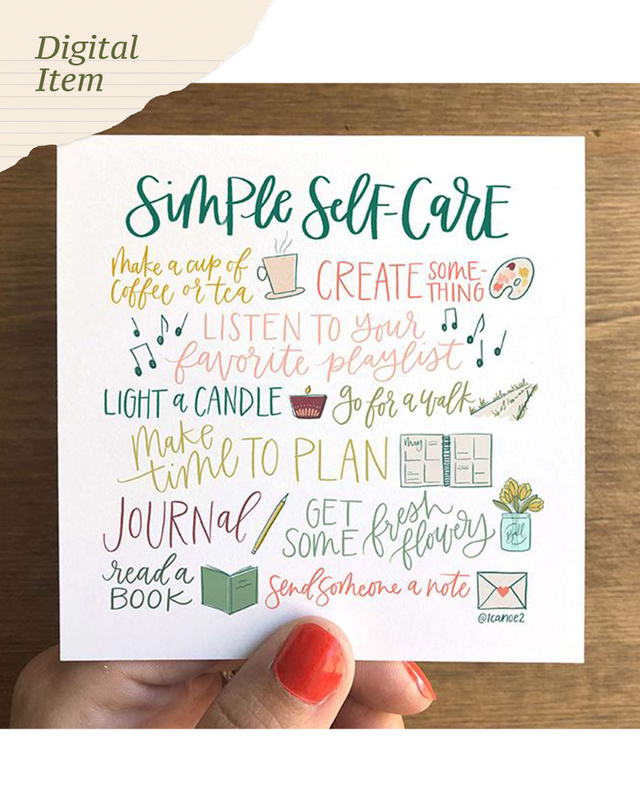 Digital
Item
Simple Self-Care
Make a cup of
coffee or tea
CREATE SOME-
THING
LISTEN TO your
favorite playlist
LIGHT a CANDLE
go for a walk
Make
time TO PLAN
May
JOURNal
GET
SOME fresh
flowers
Ball
read a
BOOK
Send someone a note
@1canoe2